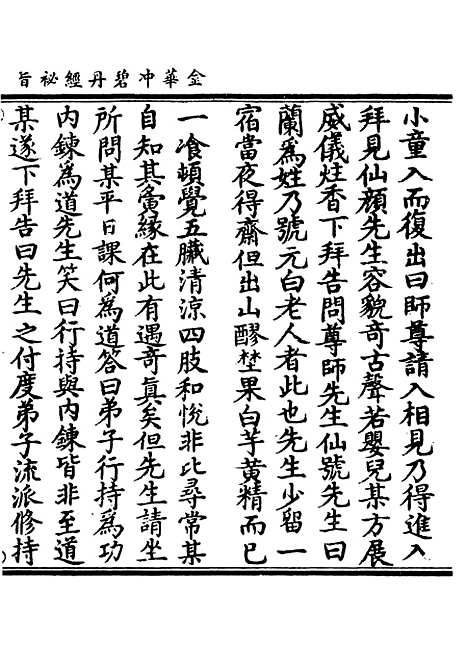 金華冲碧丹經祕旨
小童入而復出曰師尊請入相見乃得進入
拜見仙顔先生容貌奇古聲若嬰兒某方展
威儀炷香下拜告問尊師先生仙號先生曰
蘭爲姓乃號元白老人者此也先生少留一
宿當夜得齋但出山醪埜果白芋黄精而已
一飡頓覺五臟清涼四肢和悅非比尋常某
自知其夤緣在此有遇奇眞矣但先生請坐
所問某平日課何爲道答曰弟子行持爲功
内鍊為道先生笑曰行持與内鍊皆非至道
某遂下拜告曰先生之付度弟子流派修持